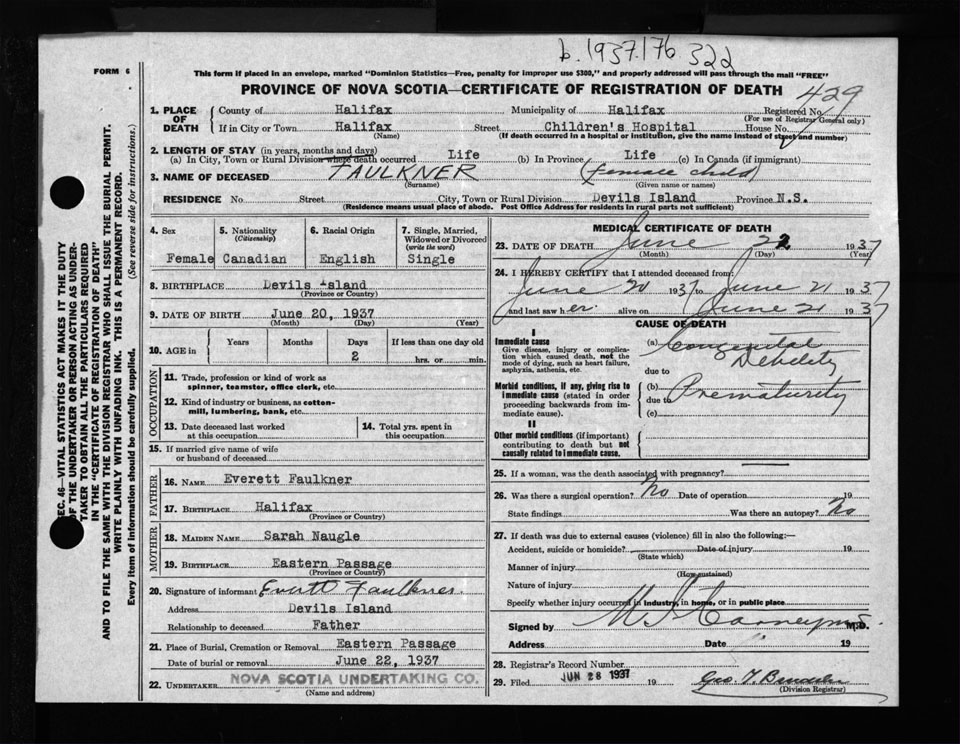 b. 1937.176 322
FORM 6
This form if placed in an envelope, marked "Dominion Statistics—Free, penalty for improper use $300," and properly addressed will pass through the mail "FREE"
PROVINCE OF NOVA SCOTIA—CERTIFICATE OF REGISTRATION OF DEATH
1. PLACE OF DEATH
County of Halifax Municipality of Halifax Registered No. 429
(For use of Registrar General only)
If in City or Town Halifax Street Children's Hospital House No.
(Name) (If death occurred in a hospital or institution, give the name instead of street and number)
2. LENGTH OF STAY (in years, months and days)
(a) In City, Town or Rural Division where death occurred Life (b) In Province Life (c) In Canada (if immigrant)
3. NAME OF DECEASED FAULKNER (female child)
(Surname) (Given name or names)
RESIDENCE No. Street City, Town or Rural Division Devils Island Province N.S.
(Residence means usual place of abode. Post Office Address for residents in rural parts not sufficient)
4. Sex 5. Nationality (Citizenship) 6. Racial Origin 7. Single, Married, Widowed or Divorced (write the word)
Female Canadian English Single
8. BIRTHPLACE Devils Island
(Province or Country)
9. DATE OF BIRTH June 20, 1937
(Month) (Day) (Year)
10. AGE in Years Months Days If less than one day old
2 hrs. or min.
OCCUPATION
11. Trade, profession or kind of work as spinner, teamster, office clerk, etc.
12. Kind of industry or business, as cotton-mill, lumbering, bank, etc.
13. Date deceased last worked at this occupation 14. Total yrs. spent in this occupation
15. If married give name of wife or husband of deceased
FATHER
16. NAME Everett Faulkner
17. BIRTHPLACE Halifax
(Province or Country)
MOTHER
18. MAIDEN NAME Sarah Naugle
19. BIRTHPLACE Eastern Passage
(Province or Country)
20. Signature of informant Everett Faulkner
Address Devils Island
Relationship to deceased Father
21. Place of Burial, Cremation or Removal Eastern Passage
Date of burial or removal June 22, 1937
22. UNDERTAKER NOVA SCOTIA UNDERTAKING CO.
(Name and address)
MEDICAL CERTIFICATE OF DEATH
23. DATE OF DEATH June 22 1937
(Month) (Day) (Year)
24. I HEREBY CERTIFY that I attended deceased from:
June 20 1937 to June 21 1937
and last saw her alive on June 21 1937
CAUSE OF DEATH
I
Immediate cause
Give disease, injury or complication which caused death, not the mode of dying, such as heart failure, asphyxia, asthenia, etc.
(a) Congenital Debility
due to
Morbid conditions, if any, giving rise to immediate cause (stated in order proceeding backwards from immediate cause).
(b) Prematurity
due to
(c)
II
Other morbid conditions (if important) contributing to death but not causally related to immediate cause.
25. If a woman, was the death associated with pregnancy?
26. Was there a surgical operation? No Date of operation 19
State findings Was there an autopsy? No
27. If death was due to external causes (violence) fill in also the following:—
Accident, suicide or homicide? Date of injury 19
(State which)
Manner of injury
(How sustained)
Nature of injury
Specify whether injury occurred in industry, in home, or in public place
Signed by M.D.
Address Date 19
28. Registrar's Record Number
29. Filed JUN 28 1937 19
(Division Registrar)
SEC. 46—VITAL STATISTICS ACT MAKES IT THE DUTY
OF THE UNDERTAKER OR PERSON ACTING AS UNDER-
TAKER TO OBTAIN ALL THE PARTICULARS REQUIRED
IN THE "CERTIFICATE OF REGISTRATION OF DEATH"
AND TO FILE THE SAME WITH THE DIVISION REGISTRAR WHO SHALL ISSUE THE BURIAL PERMIT.
WRITE PLAINLY WITH UNFADING INK. THIS IS A PERMANENT RECORD.
Every item of information should be carefully supplied. (See reverse side for instructions.)